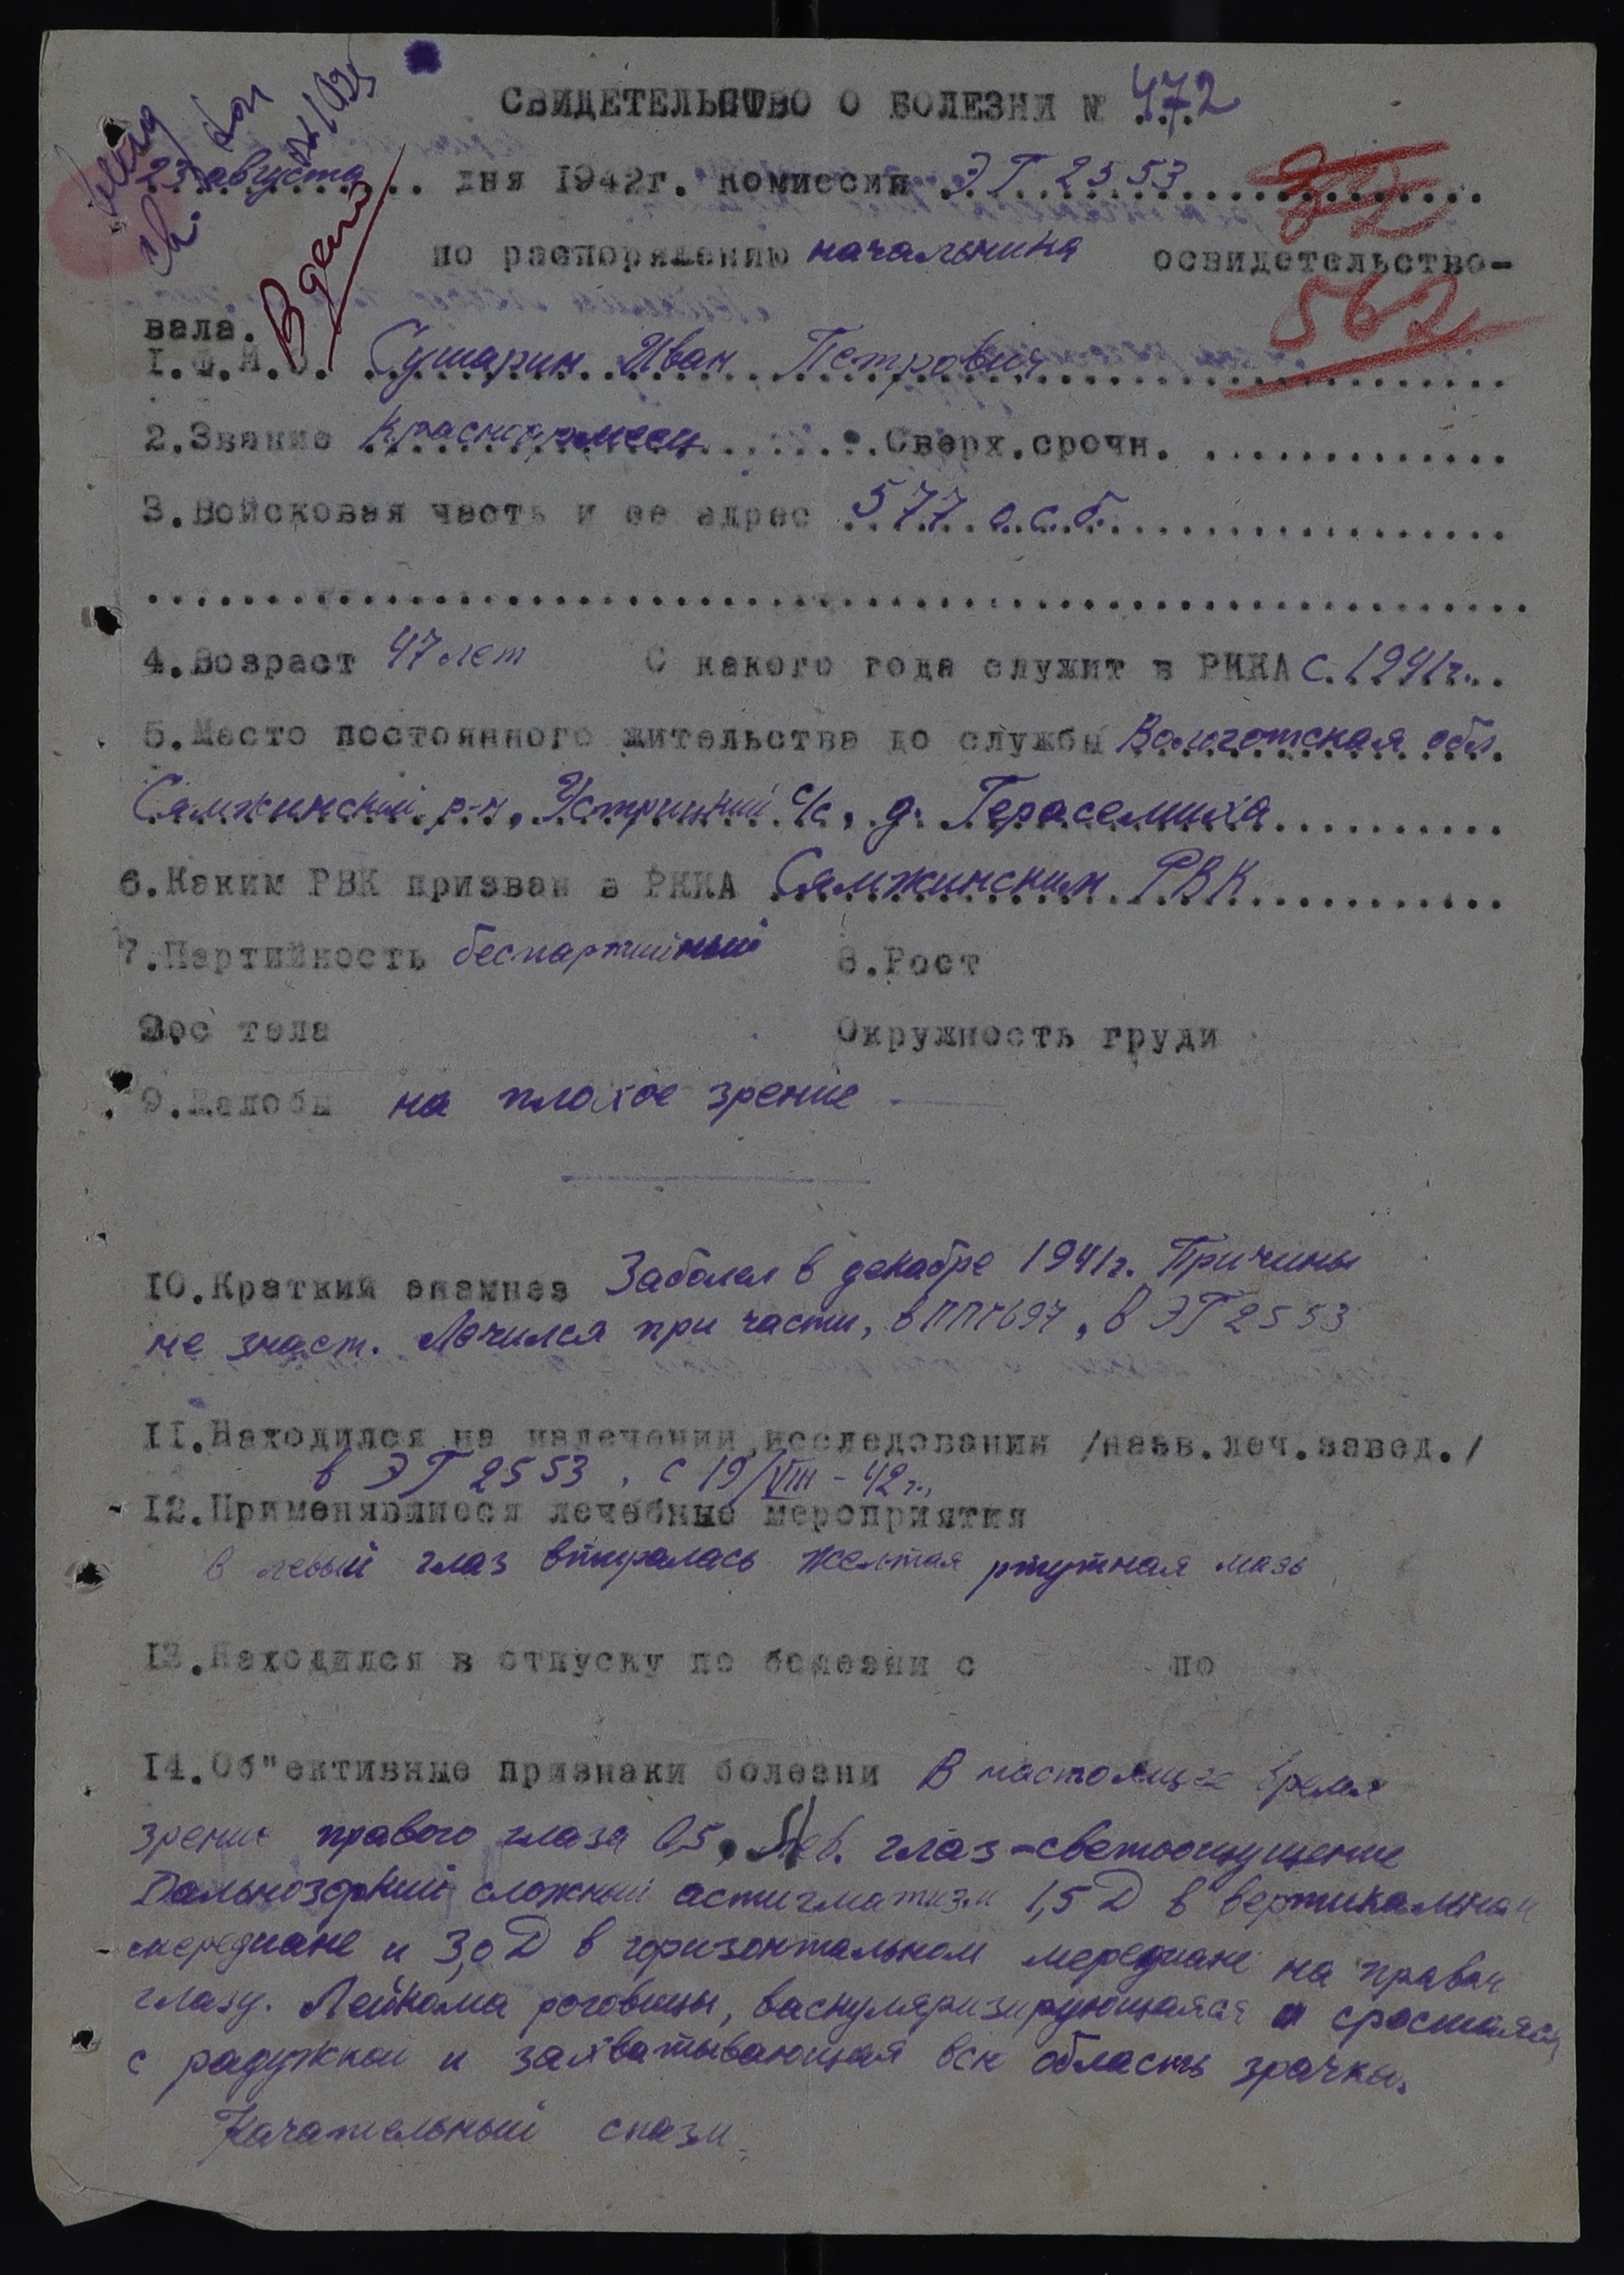 СВИДЕТЕЛЬСТВО О БОЛЕЗНИ № 472
23 августа дня 1942г. комиссия ЭГ 2553
по распоряжению начальника освидетельство-
562
вала.
В дело
1.Ф.И.О. Сушарин Иван Петрович
2.Звание Красноармеец Сверх.срочн.
3.Войсковая часть и ее адрес 577 о.с.б.
4.Возраст 47 лет С какого года служит в РККА с 1941г.
5.Место постоянного жительства до службы Вологотская обл
Сямжинский р-н, Устрицкий с/с, д. Гераселиха
6.Каким РВК призван в РККА Сямжинским РВК
7.Партийность беспартийный 8.Рост
Вес тела Окружность груди
9.Жалобы на плохое зрение
10.Краткий анамнез Заболел в декабре 1941г. Причины
не знает. Лечился при части, в ППГ 697, в ЭГ 2553
11.Находился на излечении,исследовании /назв.леч.завед./
в ЭГ 2553, с 19/VIII - 42 г.,
12.Применявшиеся лечебные мероприятия
В левый глаз втиралась желтая ртутная мазь
13.Находился в отпуску по болезни с по
14.Об"ективные признаки болезни В настоящее время
зрение правого глаза 0,5, Лев. глаз-светоощущение
Дальнозоркий сложный астигматизм 1,5 Д в вертикальном
мередиане и 3,0 Д в горизонтальном мередиане на правом
глазу. Лейкома роговицы, васкуляризирующаяся и сросшаяся
с радужкой и захватывающая всю область зрачка.
спазм